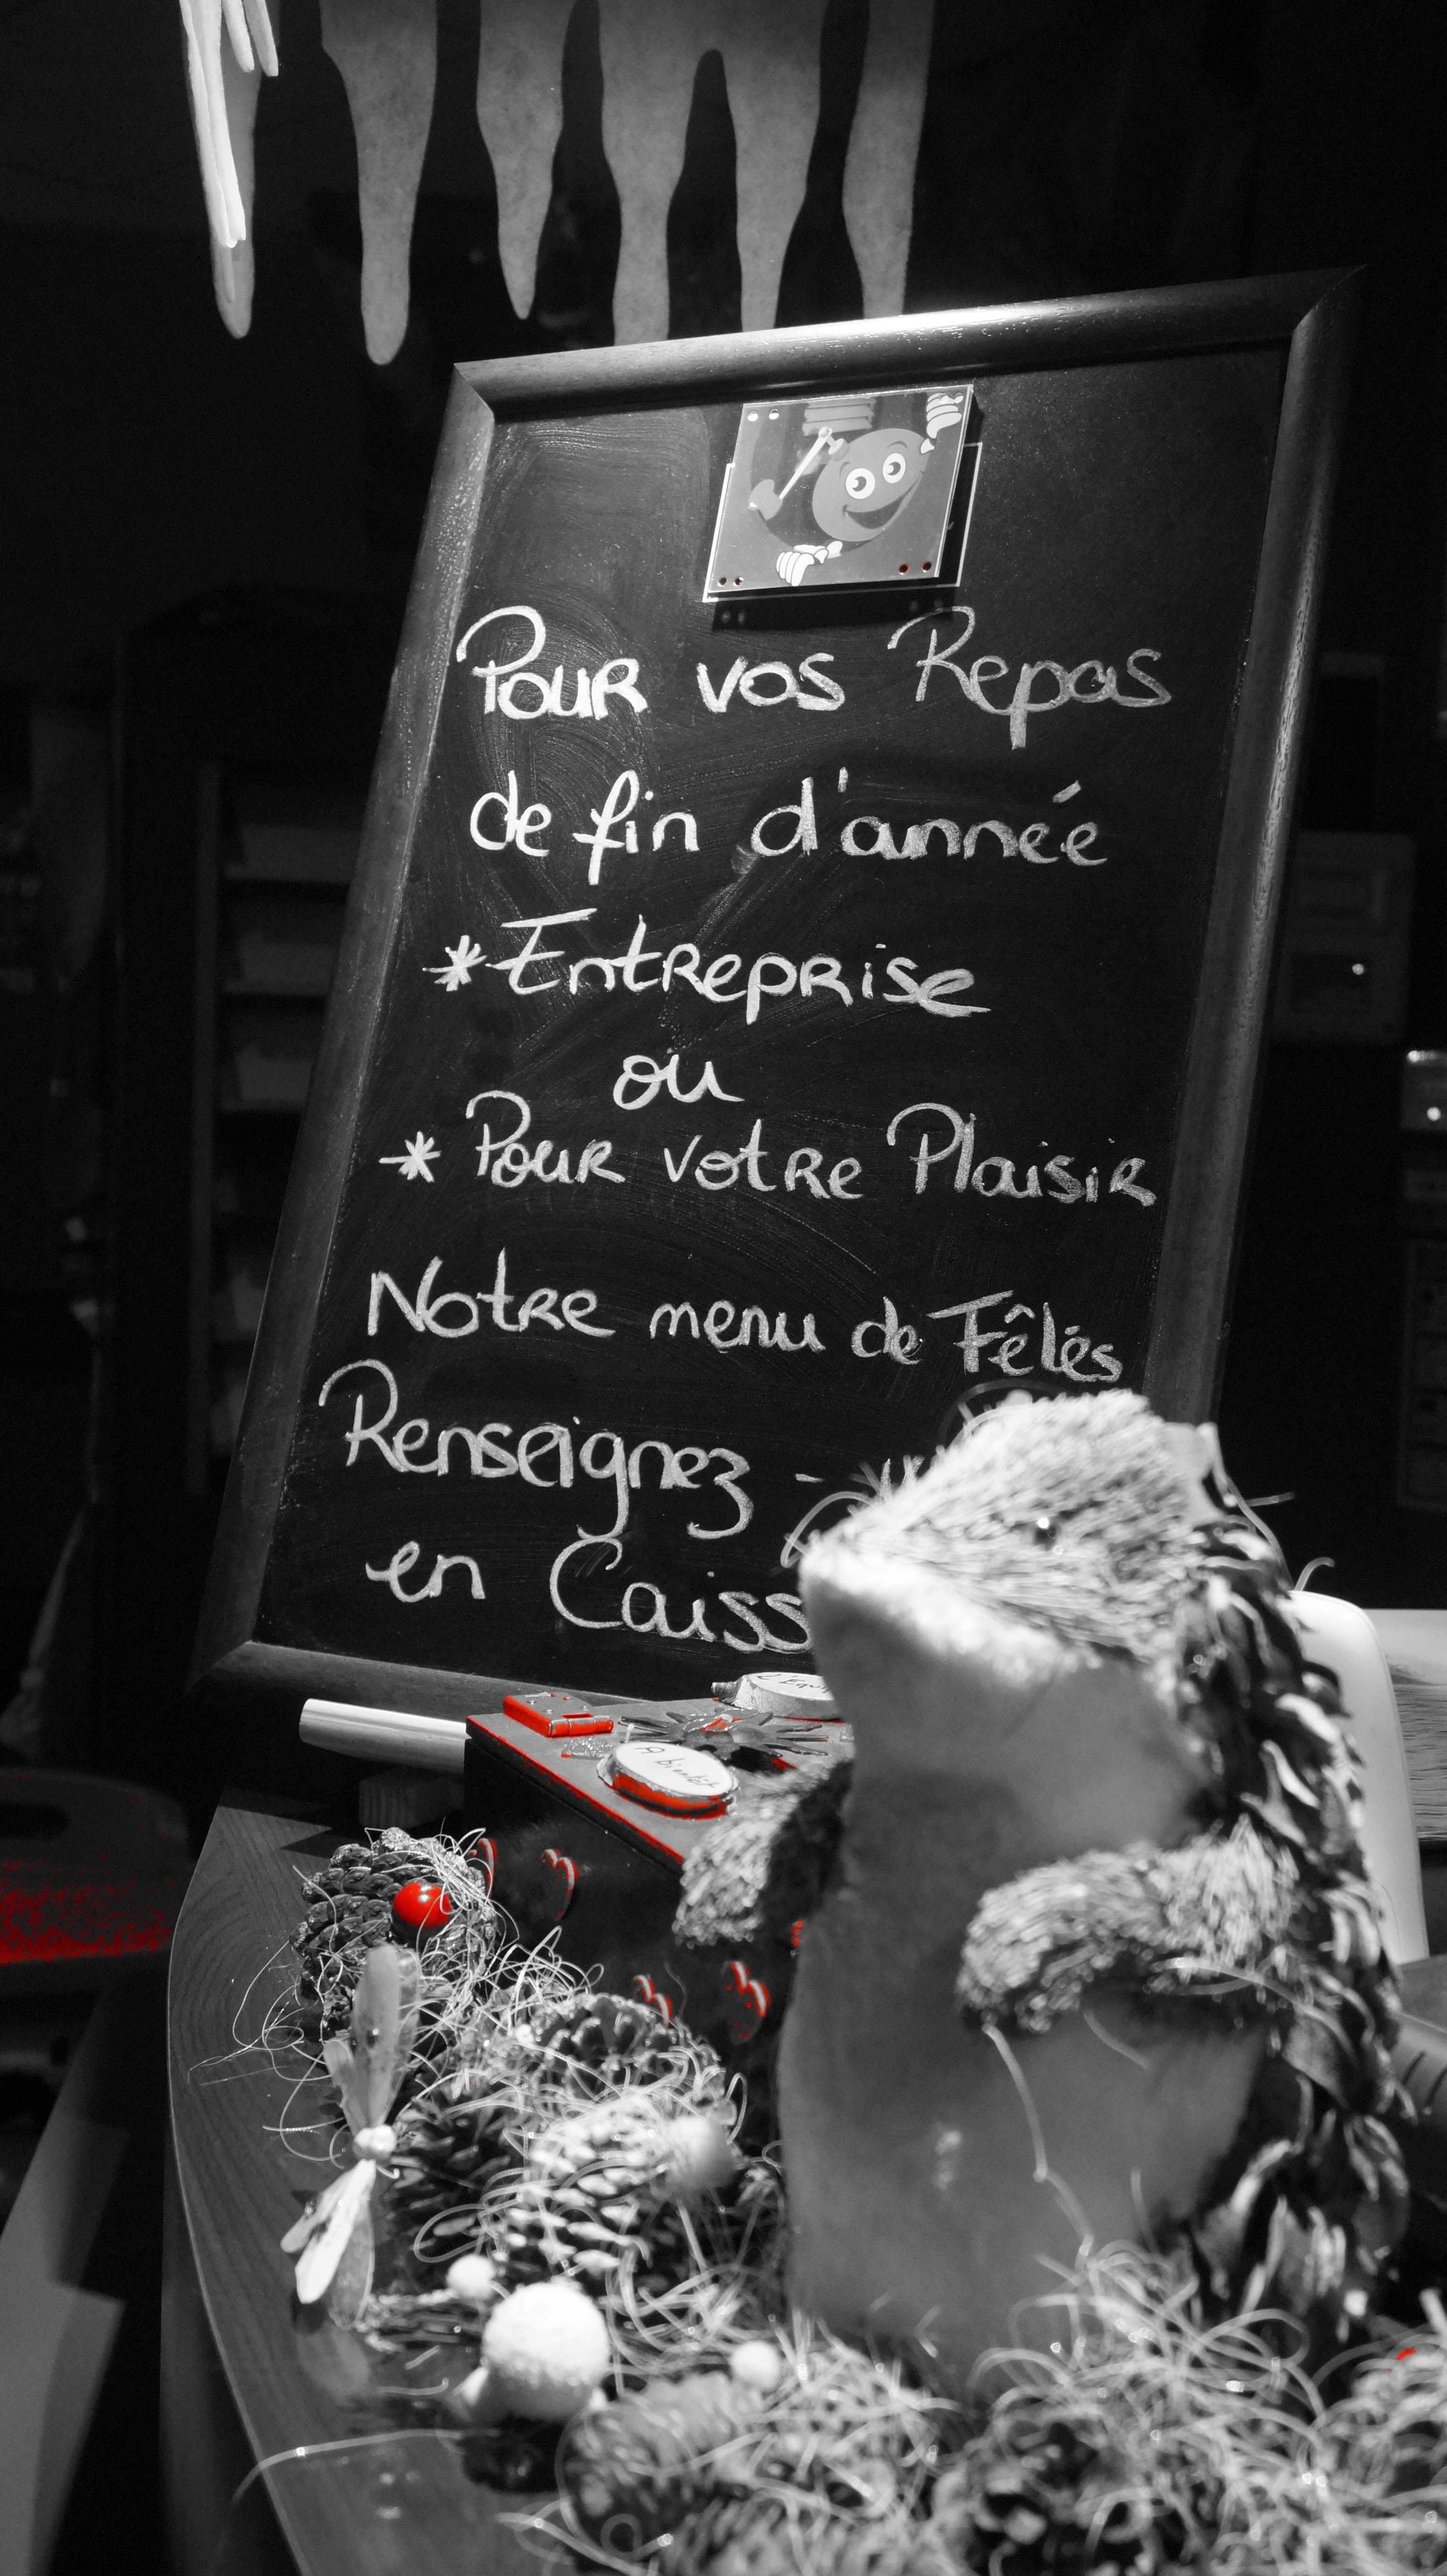 Pour vos Repas
de fin d'année
* Entreprise
ou
* Pour votre Plaisir
Notre menu de Fêlés
Renseignez -
en Caiss
A bientôt